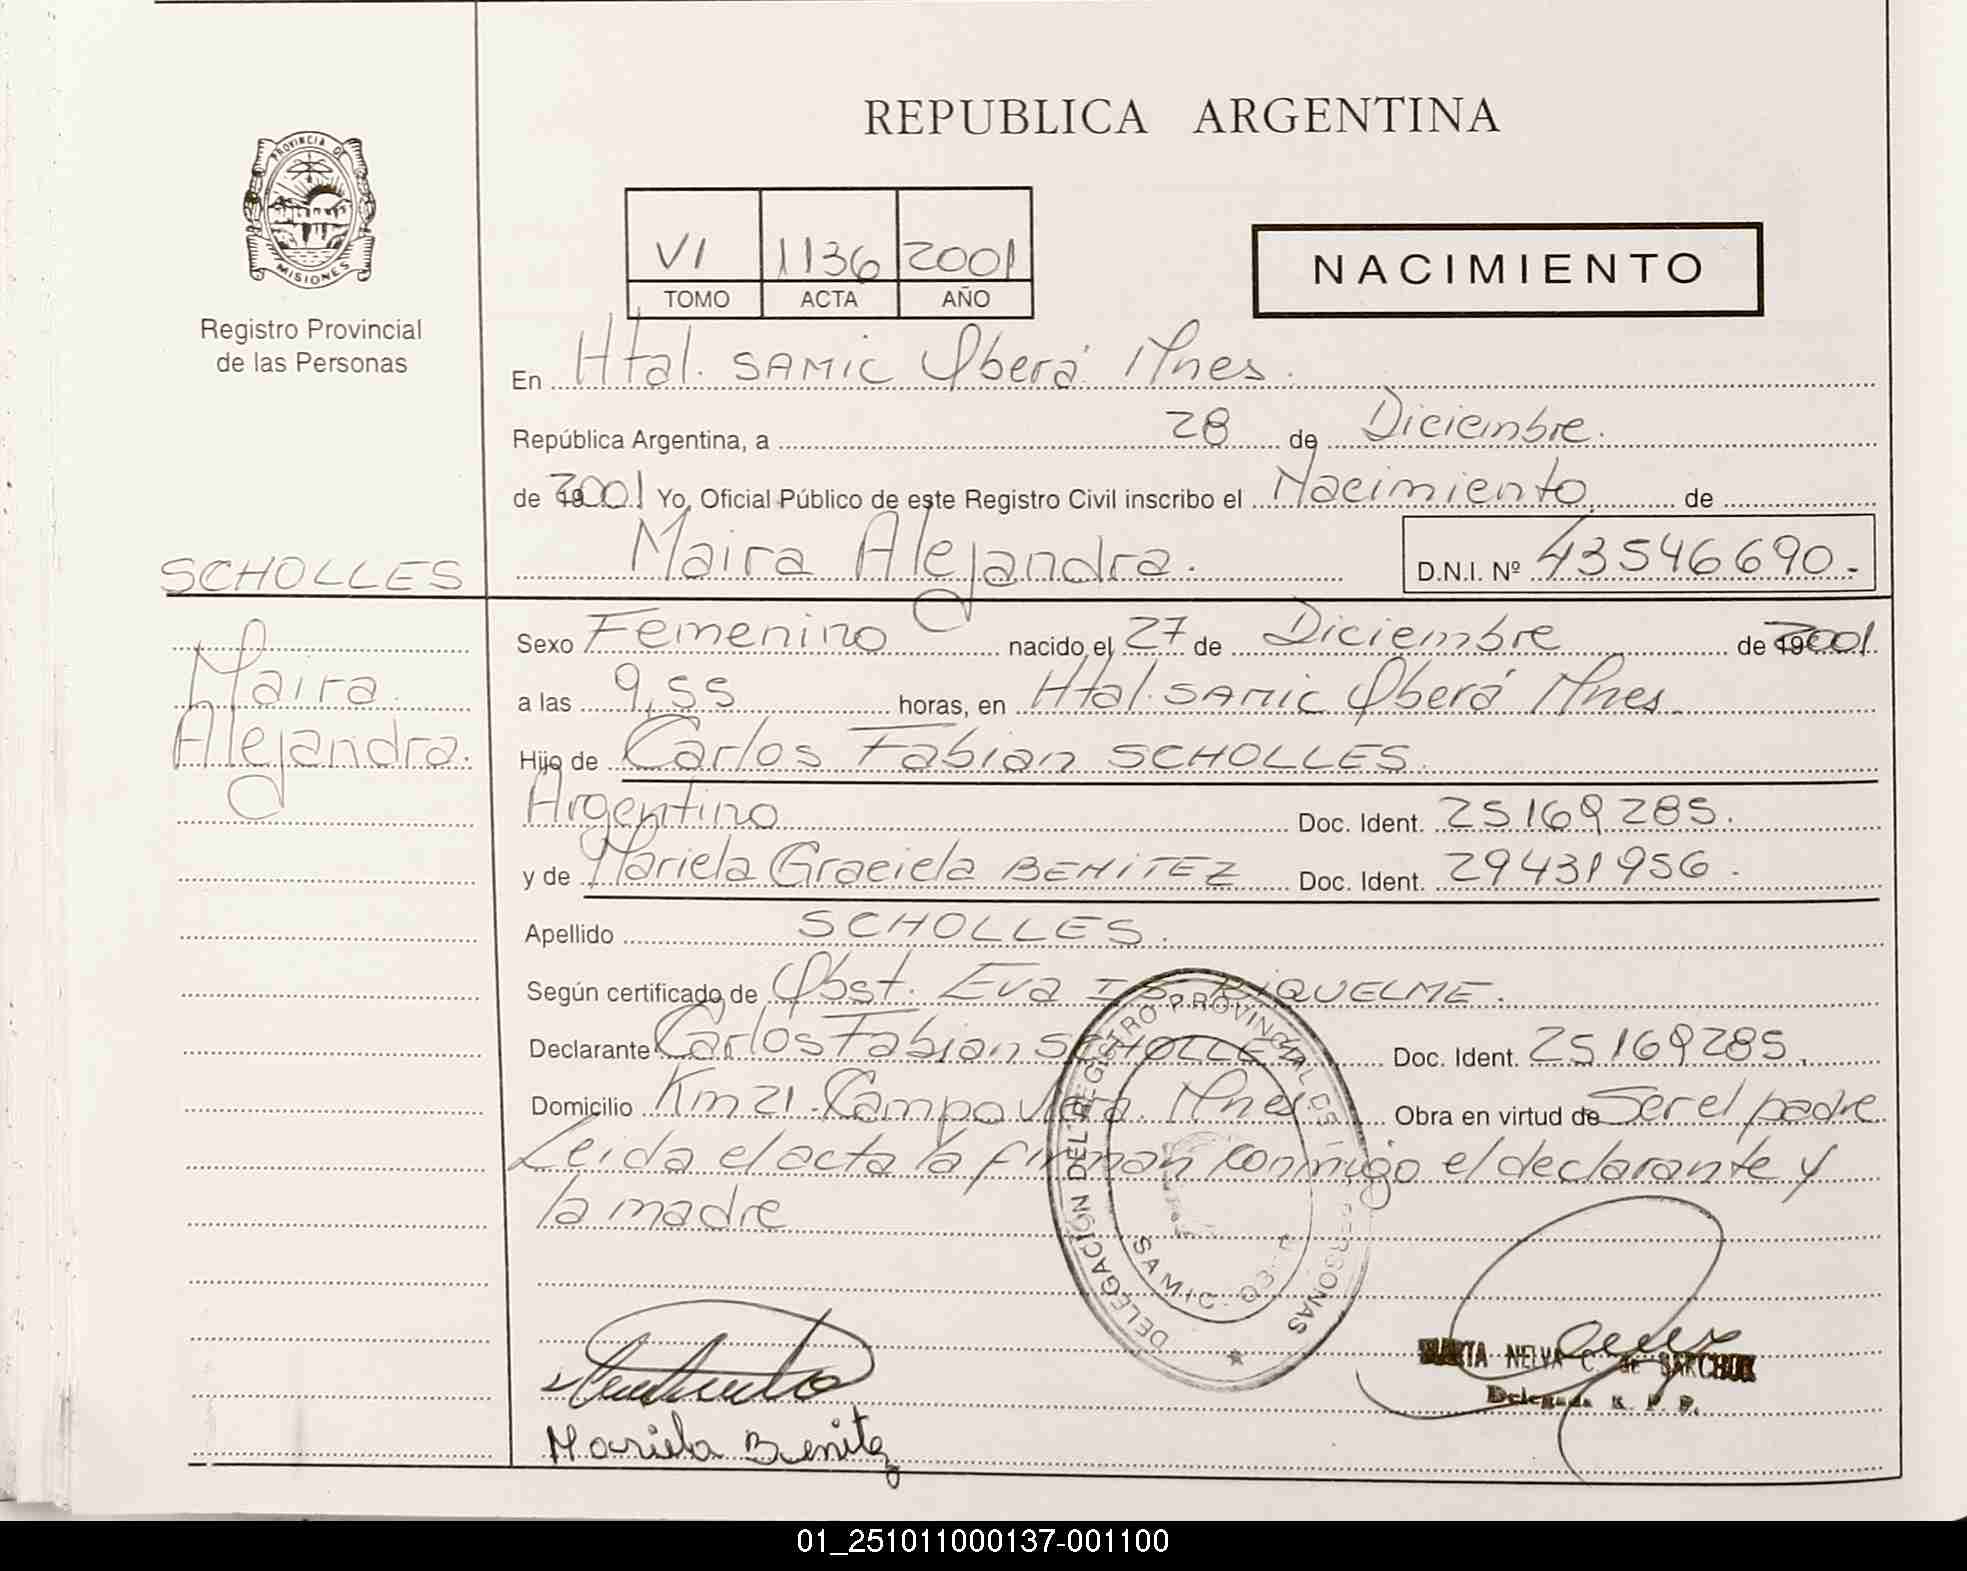 REPUBLICA ARGENTINA
PROVINCIA DE
MISIONES
Registro Provincial
de las Personas
VI 1136 2001
TOMO ACTA AÑO
NACIMIENTO
En Htal. SAMIC Oberá Mnes.
República Argentina, a 28 de Diciembre.
de 2001 Yo, Oficial Público de este Registro Civil inscribo el Nacimiento de
Maira Alejandra. D.N.I. Nº 43546690.-
SCHOLLES
Maira
Alejandra.
Sexo Femenino nacido el 27 de Diciembre de 2001
a las 9,55 horas, en Htal. SAMIC Oberá Mnes.
Hijo de Carlos Fabian SCHOLLES.
Argentino Doc. Ident. 25169285.
y de Mariela Graciela BENITEZ Doc. Ident. 29431956.
Apellido SCHOLLES.
Según certificado de Obst. Eva RIQUELME.
Declarante Carlos Fabian SCHOLLES Doc. Ident. 25169285.
Domicilio Km 21. Campo Viera. Mnes Obra en virtud de Ser el padre
Leida el acta la firman conmigo el declarante y
la madre
DELEGACIÓN DEL REGISTRO PROVINCIAL DE PERSONAS
SAMIC
NELVA C. de
Delegada R. P. P.
Mariela Benitez
01_251011000137-001100